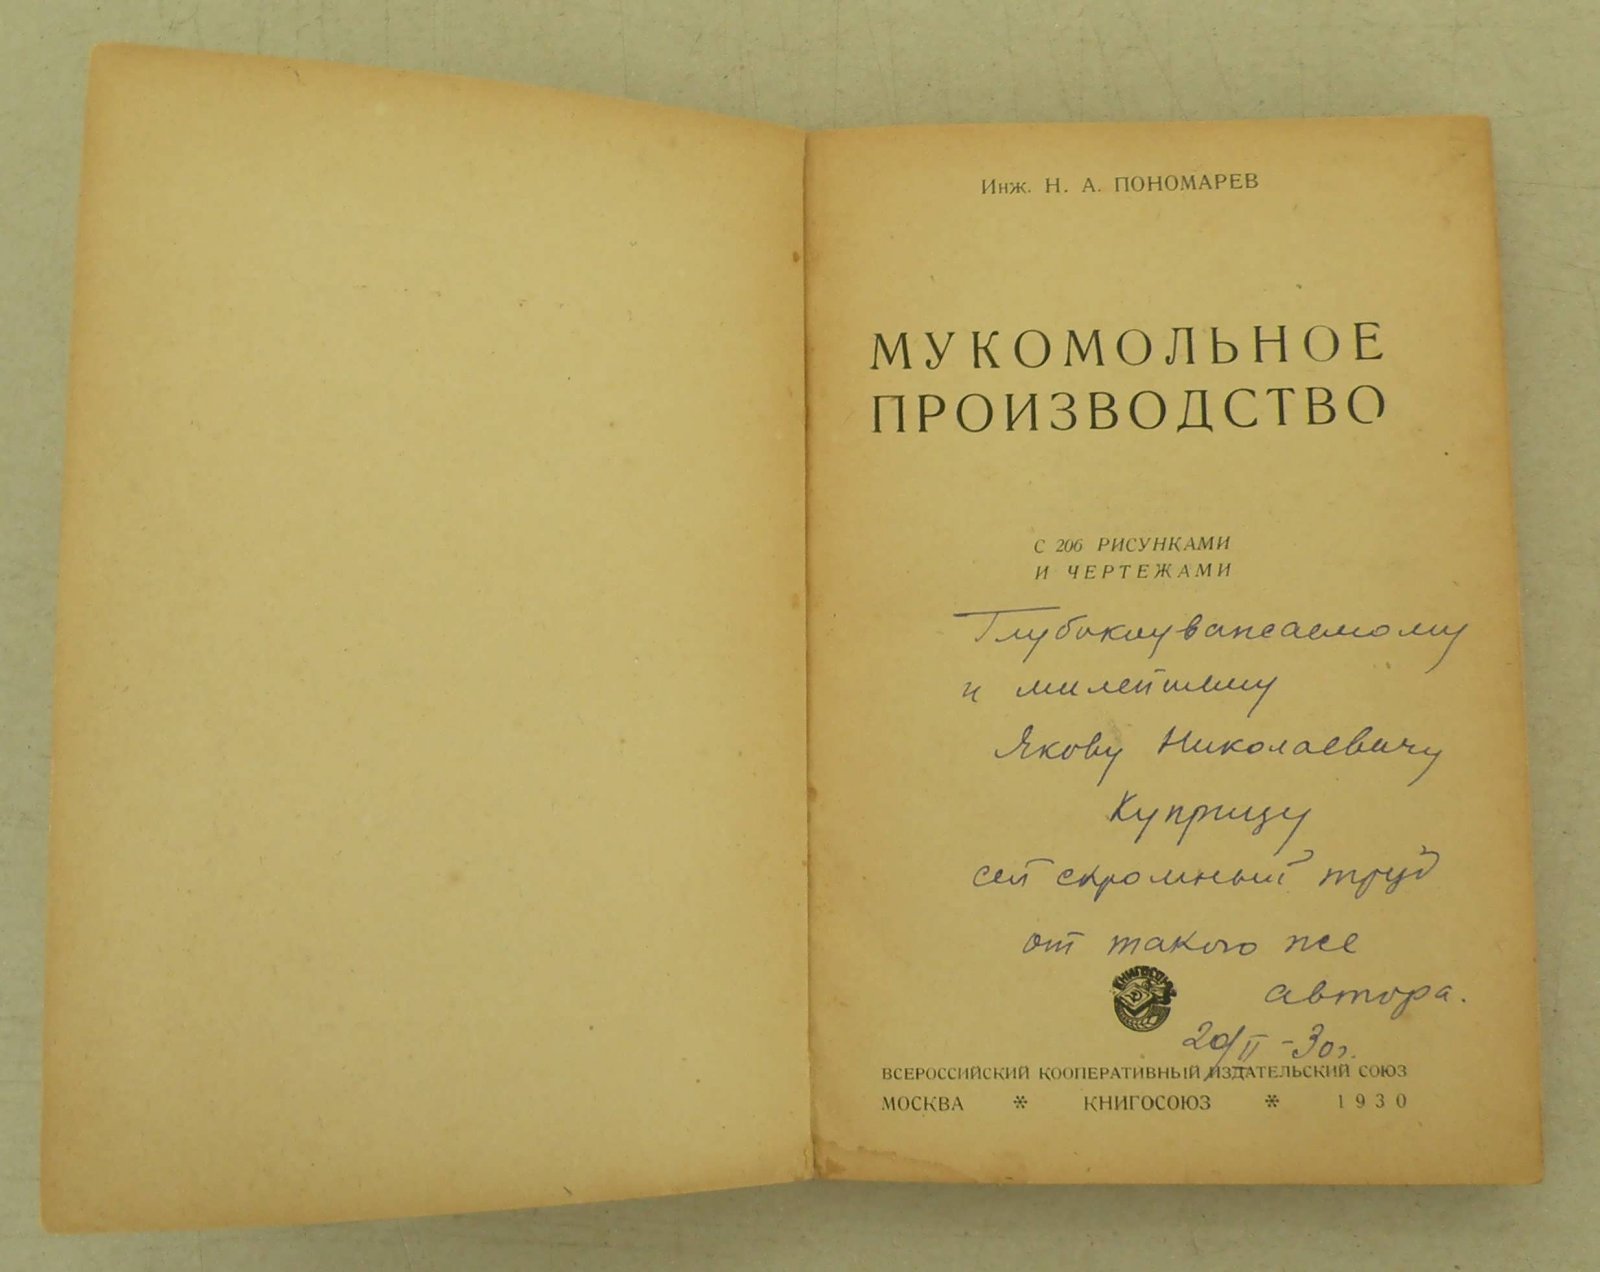 Инж. Н. А. ПОНОМАРЕВ
МУКОМОЛЬНОЕ
ПРОИЗВОДСТВО
С 206 РИСУНКАМИ
И ЧЕРТЕЖАМИ
Глубокоуважаемому
и милейшему
Якову Николаевичу
Куприцу
сей скромный труд
от такого же
автора.
КНИГОСОЮЗ
20/II - 30 г.
ВСЕРОССИЙСКИЙ КООПЕРАТИВНЫЙ ИЗДАТЕЛЬСКИЙ СОЮЗ
МОСКВА * КНИГОСОЮЗ * 1930